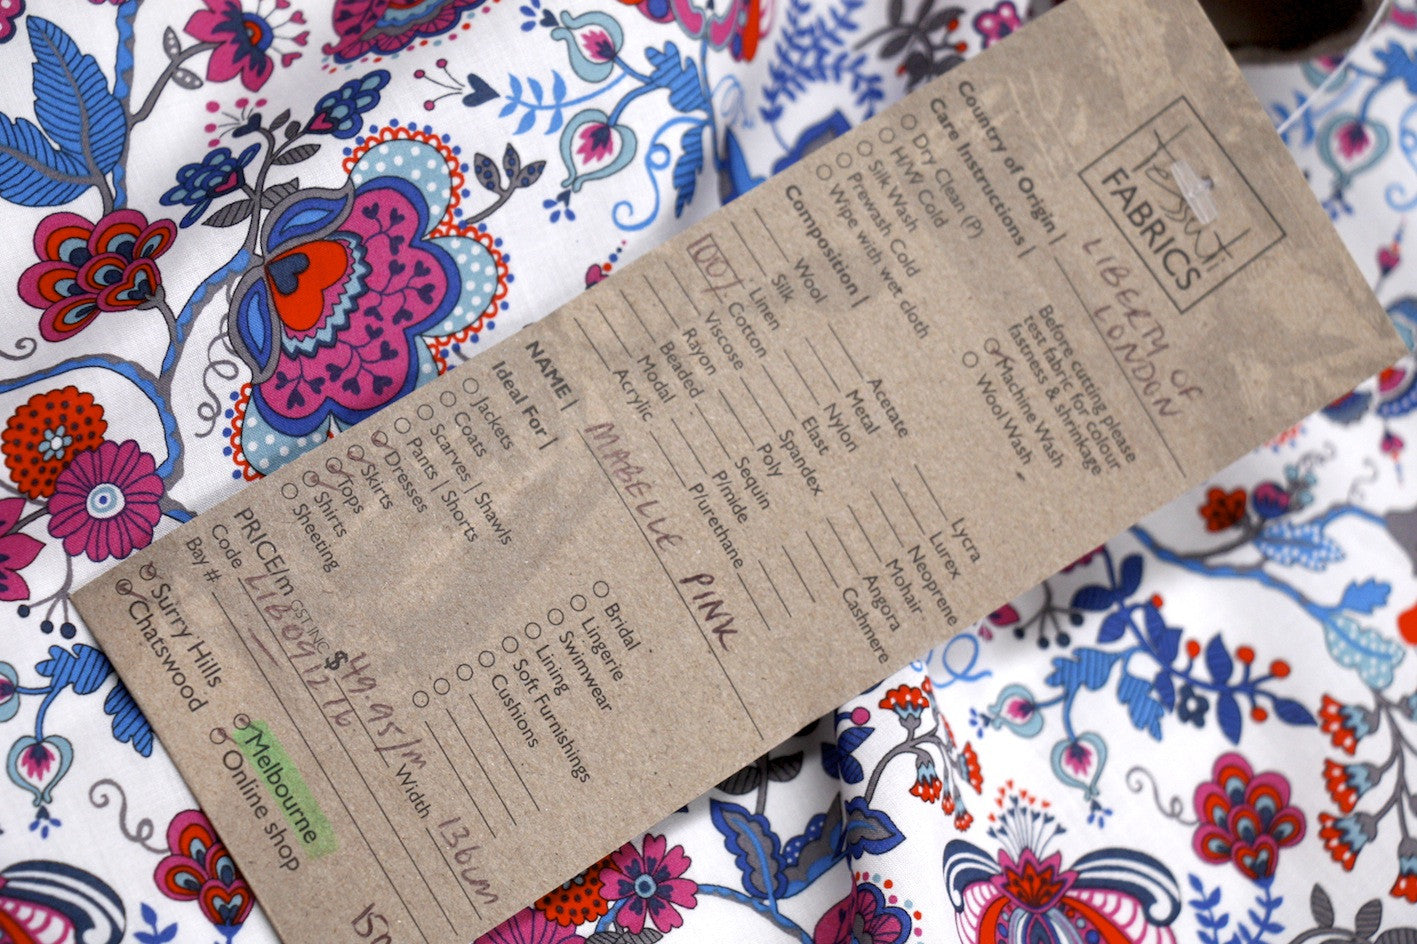 Tessuti
FABRICS
Country of Origin | LIBERTY OF
LONDON
Care Instructions |
Dry Clean (P)
H/W Cold
Silk Wash
Prewash Cold
Wipe with wet cloth
Machine Wash
Wool Wash
Before cutting please
test fabric for colour
fastness & shrinkage
Composition |
Wool
Silk
Linen
100% Cotton
Viscose
Rayon
Beaded
Modal
Acrylic
Acetate
Metal
Nylon
Elast
Spandex
Poly
Sequin
P/mide
Plurethane
Lycra
Lurex
Neoprene
Mohair
Angora
Cashmere
NAME | MABELLE PINK
Ideal For |
Jackets
Coats
Scarves | Shawls
Pants | Shorts
Dresses
Skirts
Tops
Shirts
Sheeting
Bridal
Lingerie
Swimwear
Lining
Soft Furnishings
Cushions
PRICE/m GST INC $ 49.95/m Width 136cm
Code LIB091271b
Bay # —
Surry Hills
Chatswood
Melbourne
Online shop